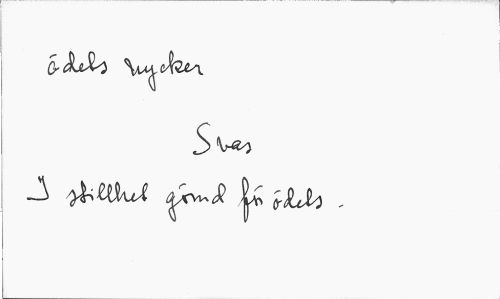 ödets nycker
Svar
I stillhet gömd för ödets -